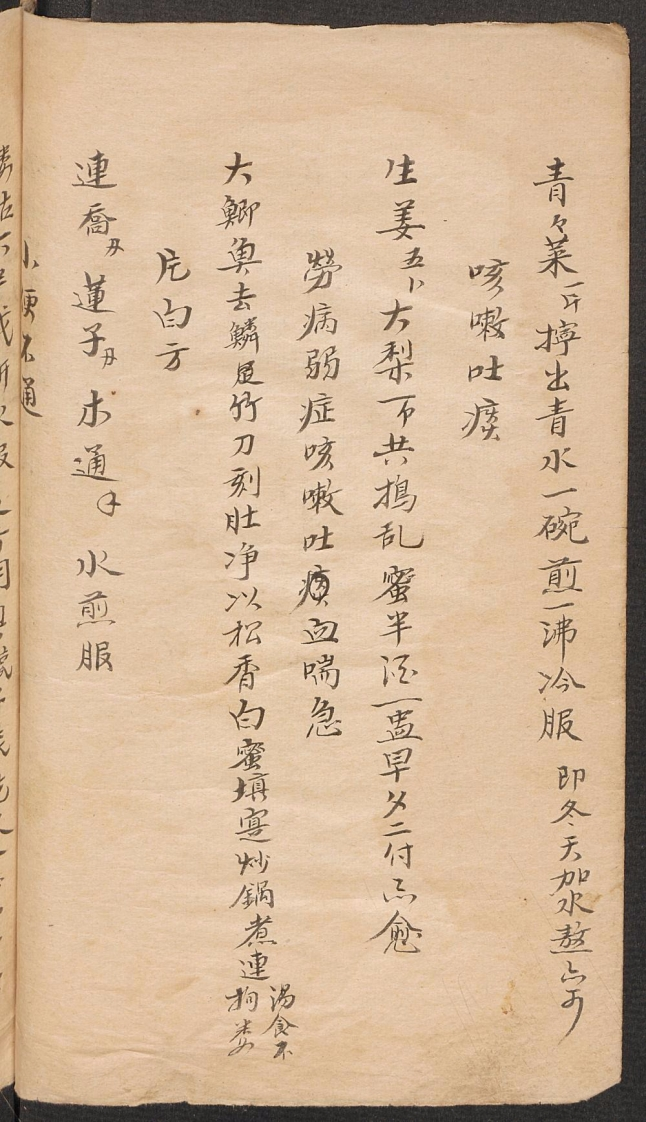 青々菜一斤擰出青水一碗煎一沸冷服 即冬天加水熬亦可
咳嗽吐痰
生姜五卜大梨一个共搗乱蜜半酒一盅早夕二付亦愈
勞病弱症咳嗽吐痰血喘急
大鯽魚去鱗 竹刀刻肚净以松香白蜜填 炒鍋煮連湯食不拘
白方
連喬 蓮子 木通 水煎服
小便不通